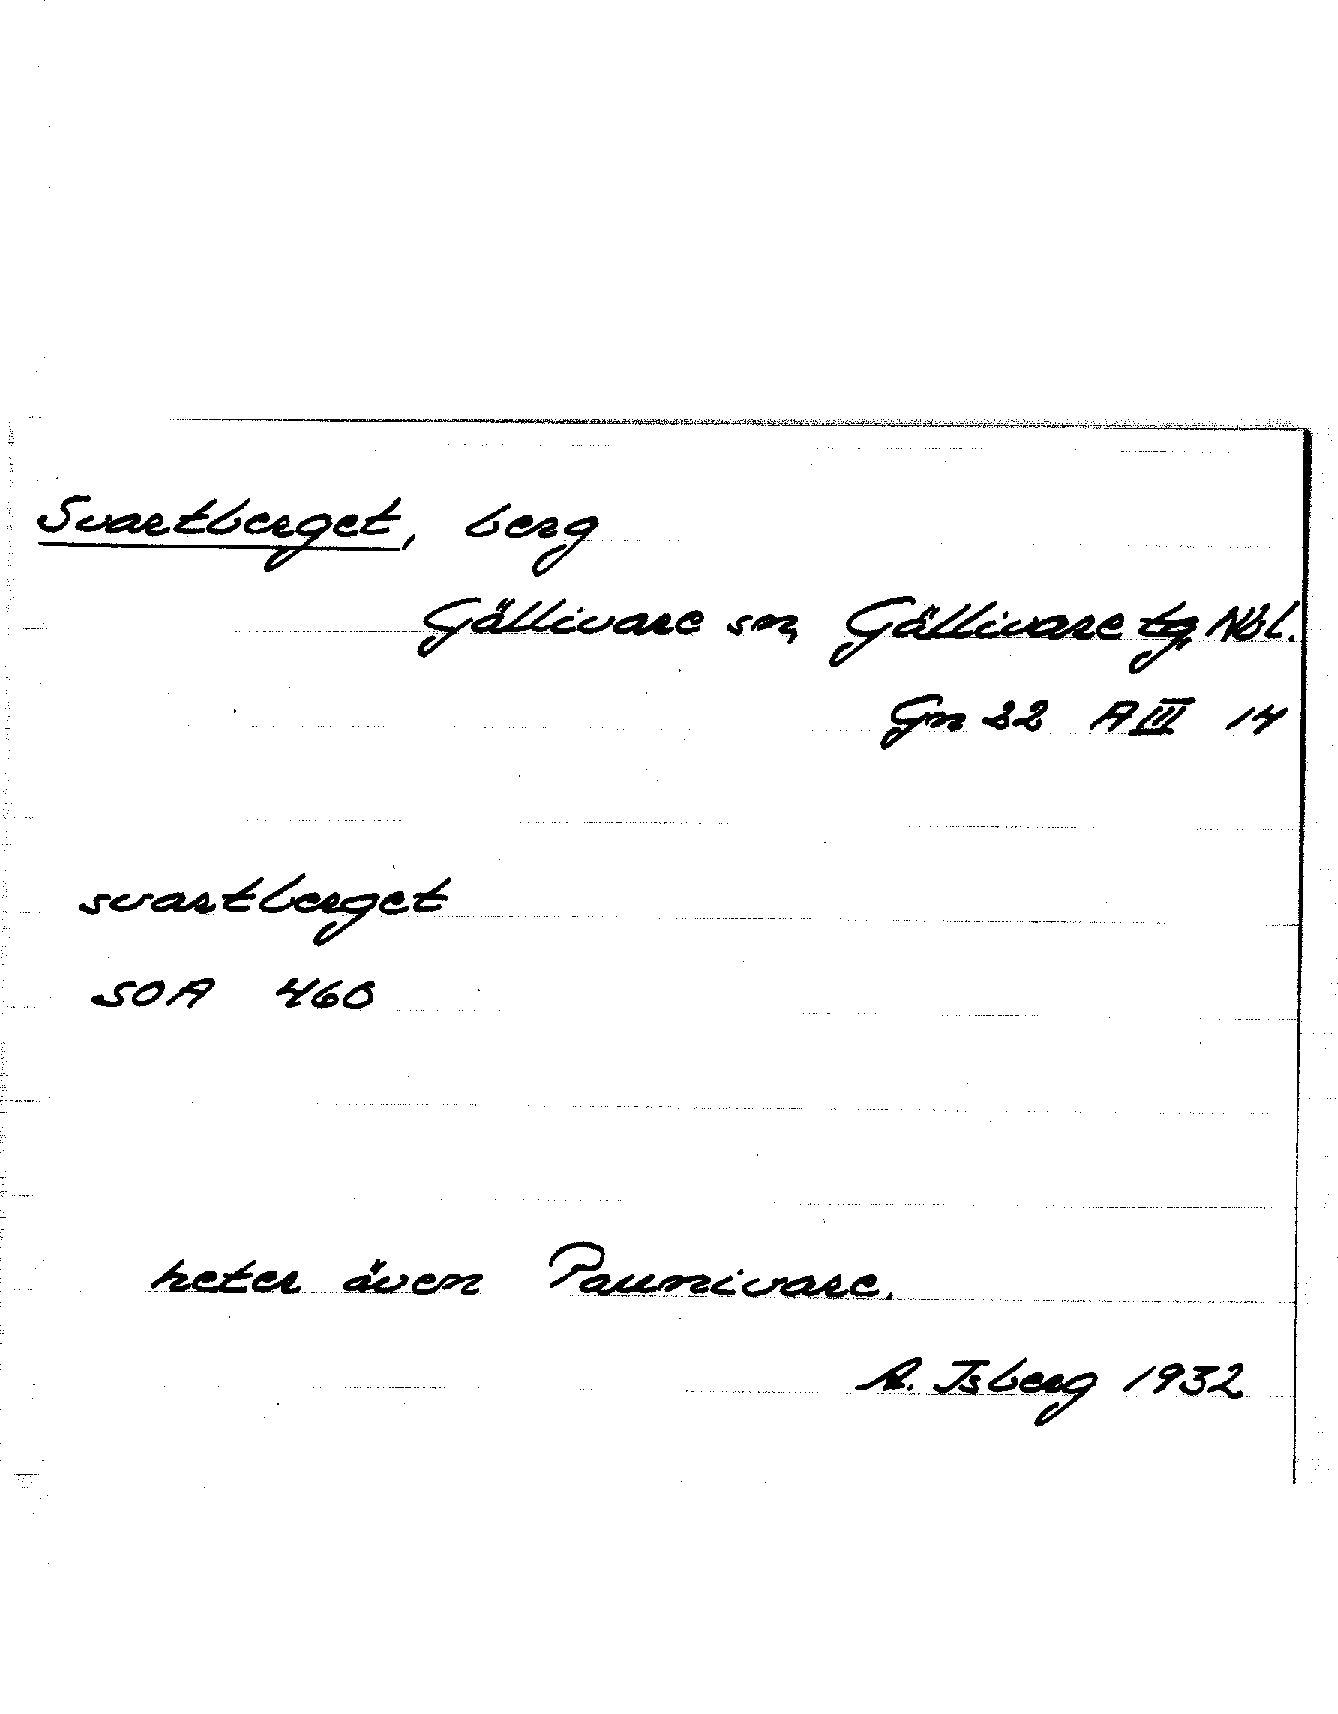 Svartberget, berg
Gällivare sn, Gällivare tg, Nbl.
Gn 22 A III 14
svartberget
SOA 460
heter även Paunivare.
A. Isberg 1932